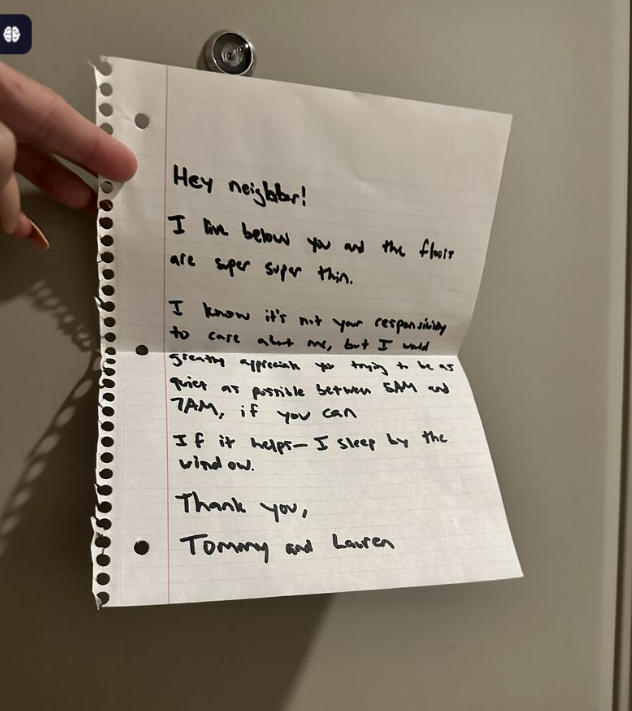 Hey neighbor!
I live below you and the floors
are super super thin.
I know it's not your responsibility
to care about me, but I would
greatly appreciate you trying to be as
quiet as possible between 5AM and
7AM, if you can
If it helps— I sleep by the
window.
Thank you,
Tommy and Lauren